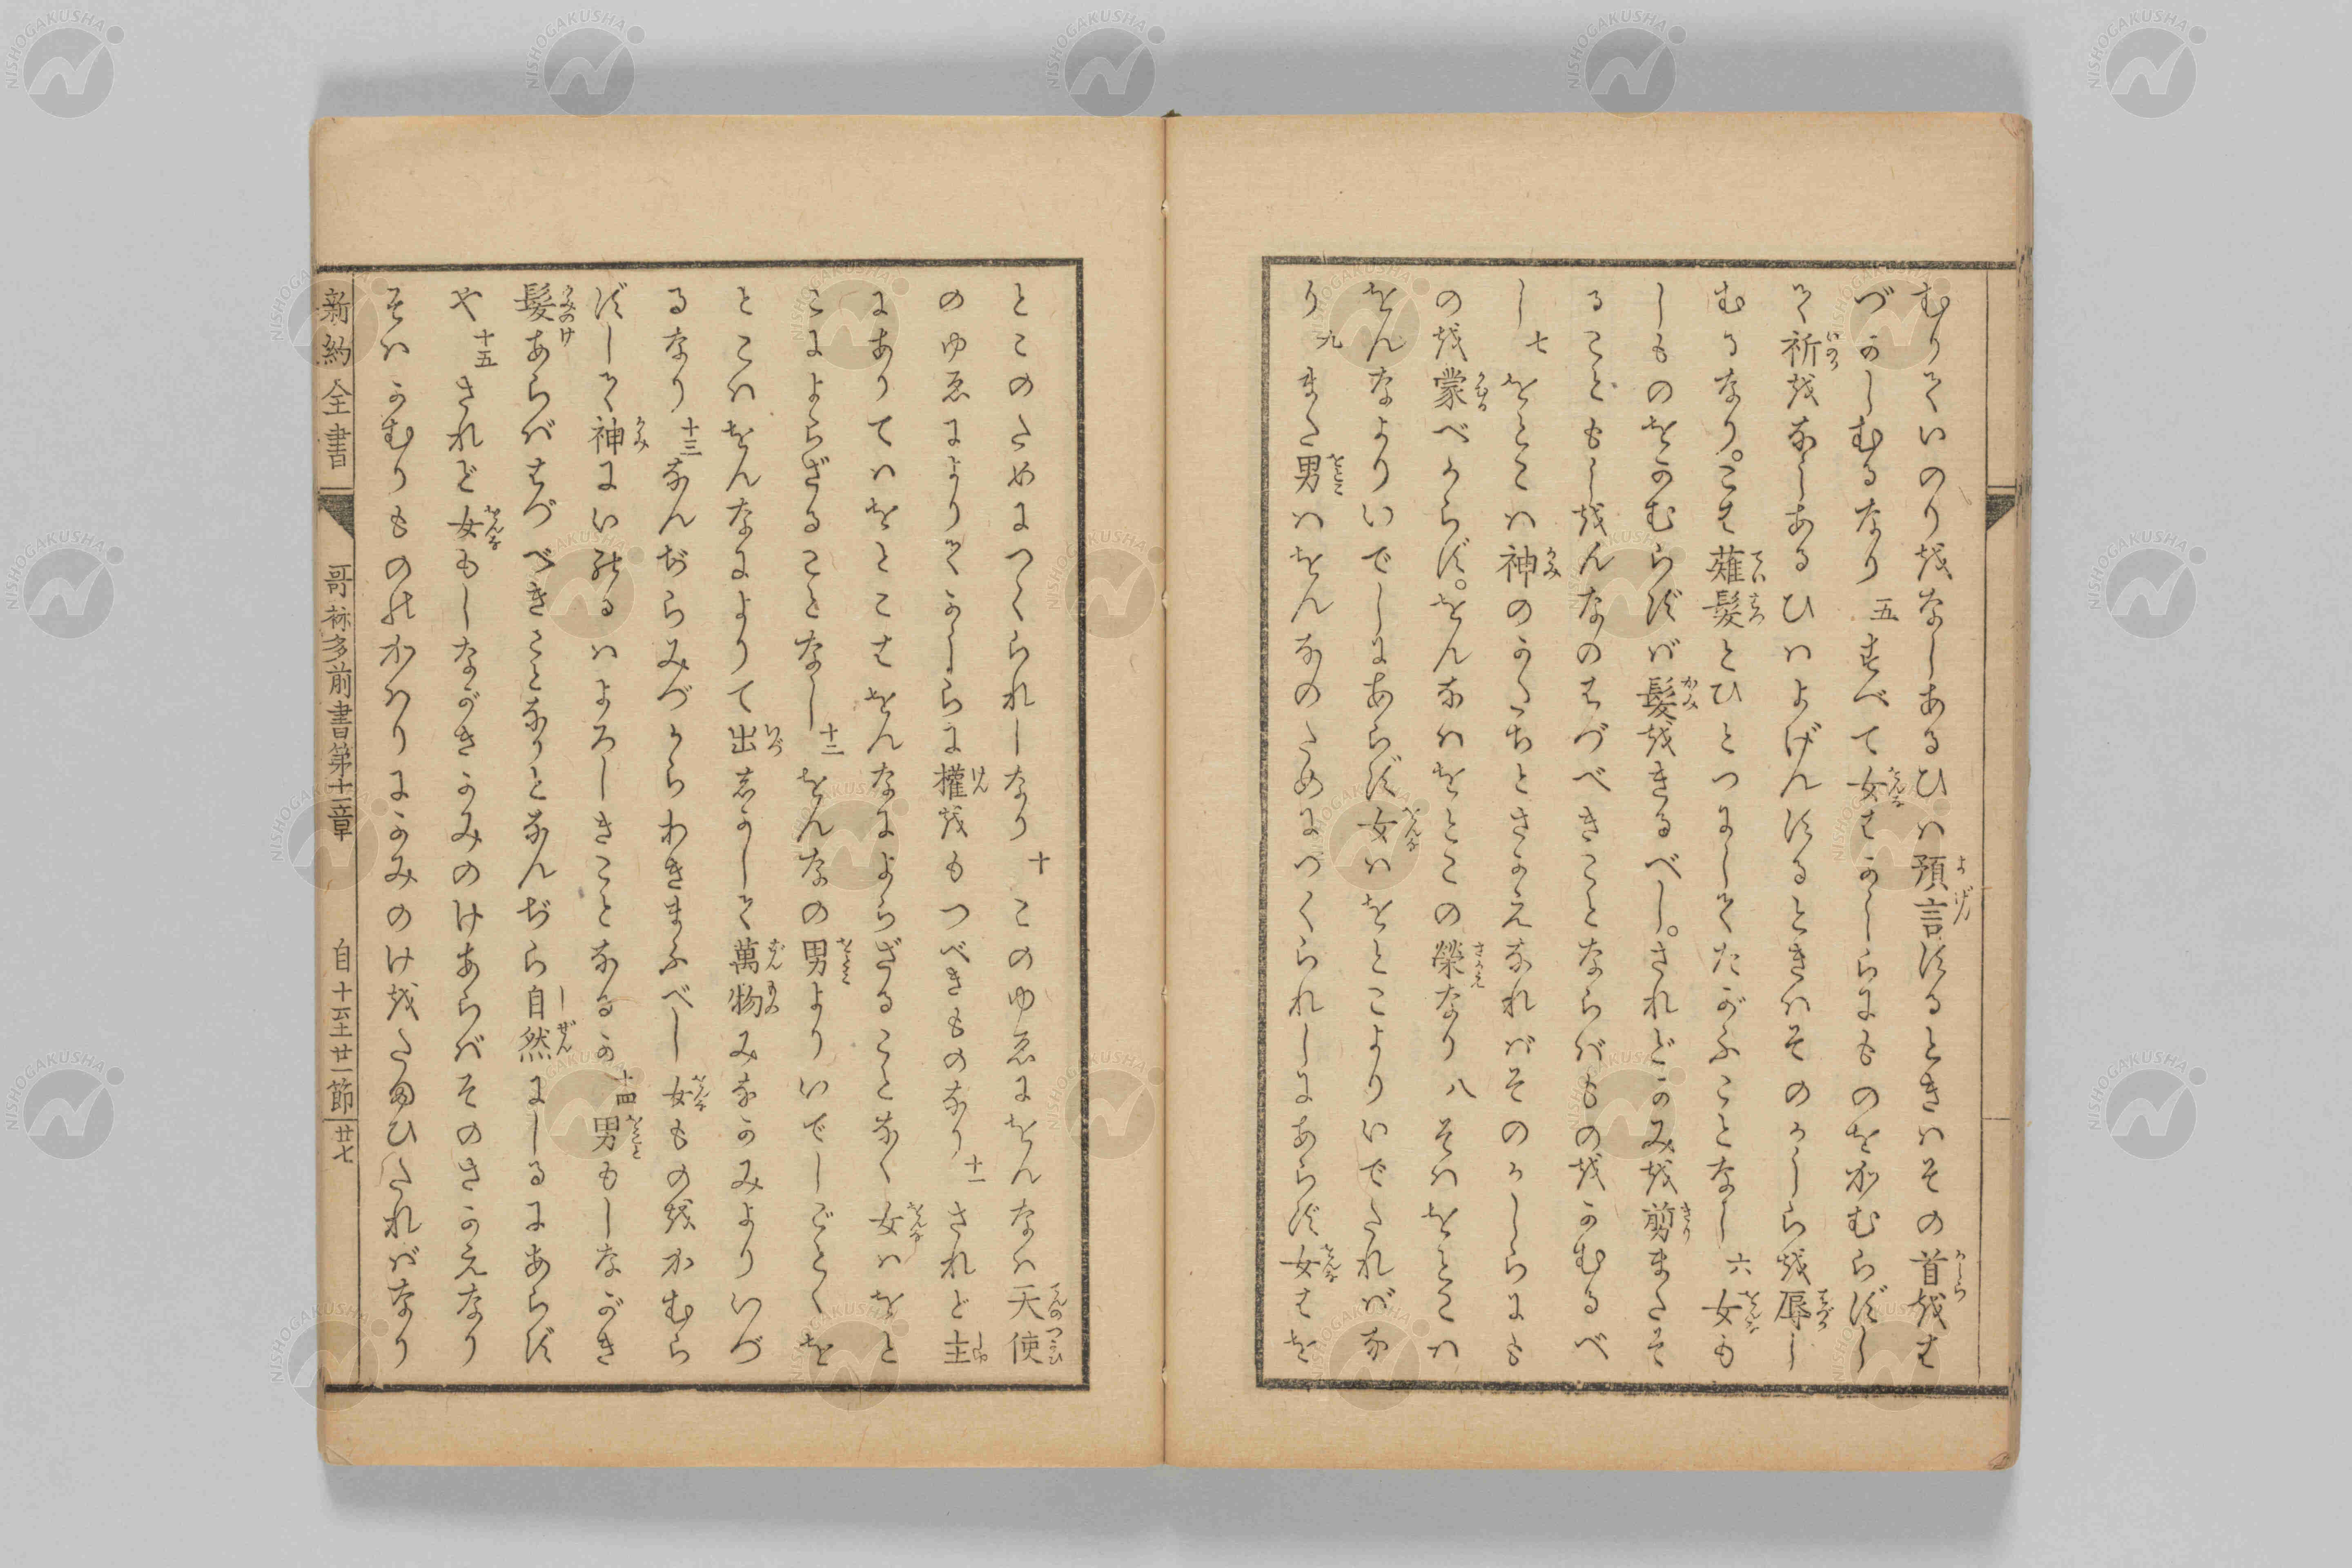 むりていのりをなしあるひハ預言するときハその首をは
づかしむるなり 五 すべて女はかしらにものをかむらずし
て祈をなしあるひハよげんするときハそのかしらを辱し
むるなり。こは薙髪とひとつにしてたがふことなし 六 女も
しものをかむらずバ髪をきるべし。されどかみを剪またそ
ることもしをんなのはづべきことならバものをかむるべ
し 七 をとこハ神のかたちとさかえなれバそのかしらにも
のを蒙べからず。をんなハをとこの榮なり 八 そハをとこハ
をんなよりいでしにあらず女ハをとこよりいでたれバな
り 九 また男ハをんなのためにつくられしにあらず女はを
とこのためにつくられしなり 十 このゆゑにをんなハ天使
のゆゑによりてかしらに權をもつべきものなり 十一 されど主
にありてハをとこはをんなによらざることなく女ハをと
こによらざることなし 十二 をんなの男よりいでしごとくを
とこハをんなによりて出しかして萬物みなかみよりいづ
るなり 十三 なんぢらみづからわきまふべし女ものをかむら
ずして神にいのるハよろしきことなるか 十四 男もしながき
髪あらバはづべきことなりとなんぢら自然にしるにあらず
や 十五 されど女もしながきかみのけあらバそのさかえなり
そハかむりもののかハりにかみのけをたまひたれバなり
新約全書 哥林多前書第十一章 自十至廿一節 廿七